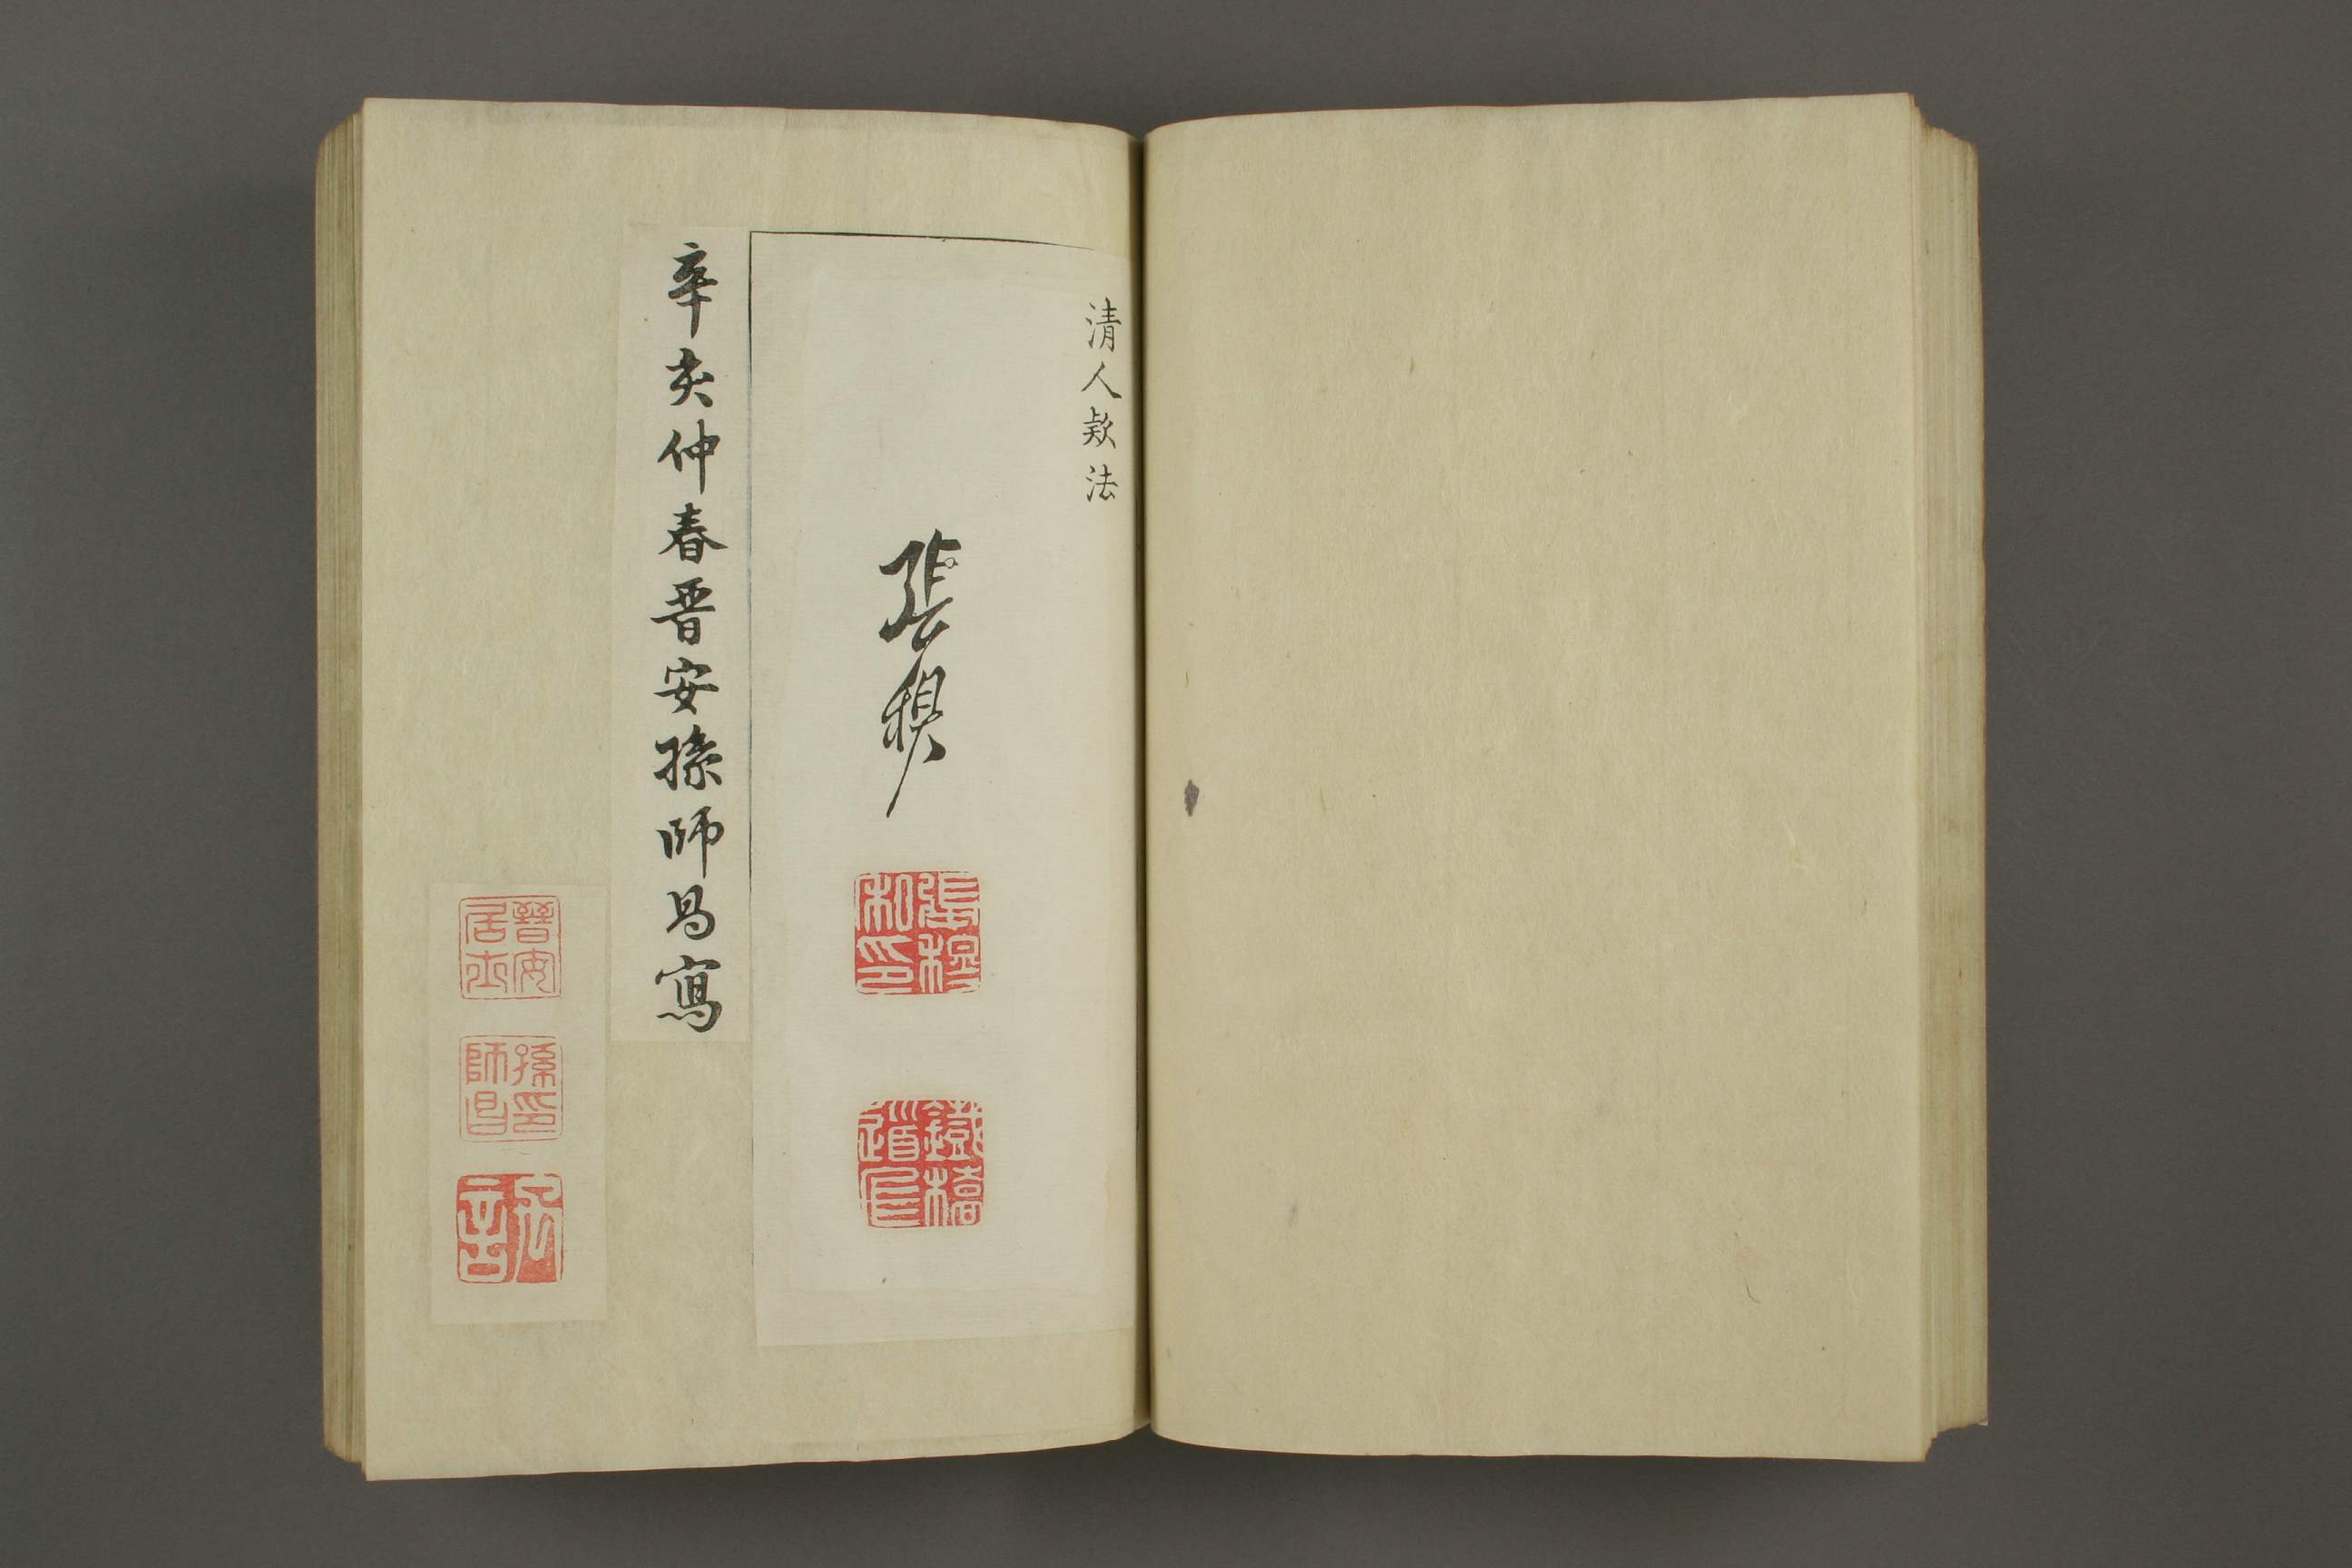 清人欵法
張穆
張穆私印
鐵橋道人
辛亥仲春晋安孫師昌寫
晉安居士
孫印師昌